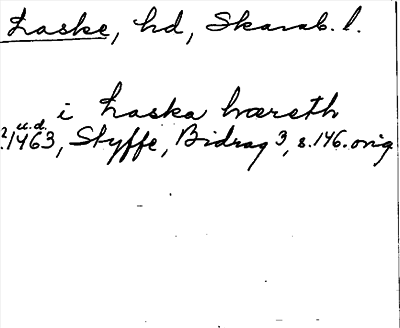 Laske, hd, Skarab. l.
i Laska hæreth
u.d.
? 1463, Styffe, Bidrag 3, s. 146. orig